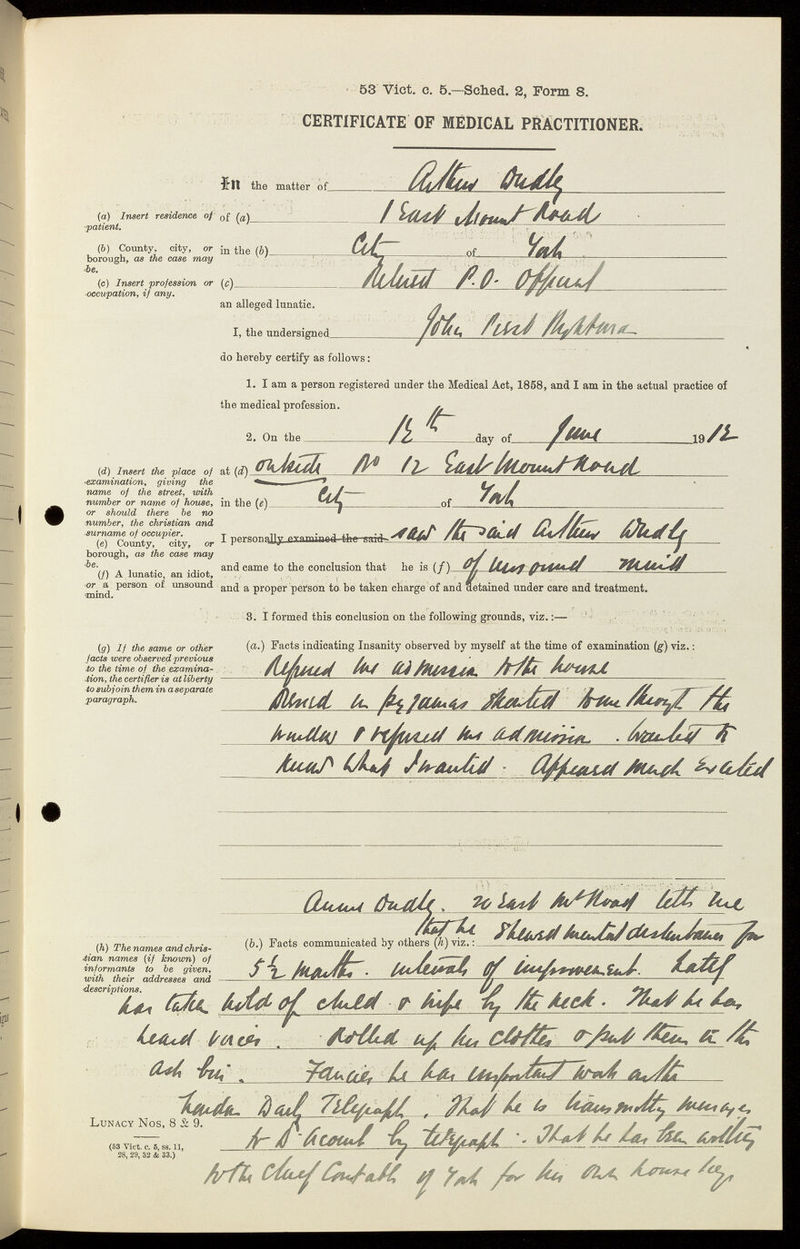 53 Vict. c. 5.—Sched. 2, Form 8.
CERTIFICATE OF MEDICAL PRACTITIONER.
In the matter of Arthur Dudley
(a) Insert residence of patient.
of (a) 1 East Mount Road
(b) County, city, or borough, as the case may be.
in the (b) City of York
(c) Insert profession or occupation, if any.
(c) Retired P.O. Official
an alleged lunatic.
I, the undersigned John
do hereby certify as follows:
1. I am a person registered under the Medical Act, 1858, and I am in the actual practice of
the medical profession.
2. On the 12th day of June 1912
(d) Insert the place of examination, giving the name of the street, with number or name of house, or should there be no number, the christian and surname of occupier.
at (d) outside No 12 East Mount Road
(e) County, city, or borough, as the case may be.
in the (e) City of York
I personally examined the said saw the said Arthur Dudley
(f) A lunatic, an idiot, or a person of unsound mind.
and came to the conclusion that he is (f) of unsound mind
and a proper person to be taken charge of and detained under care and treatment.
3. I formed this conclusion on the following grounds, viz.:—
(g) If the same or other facts were observed previous to the time of the examination, the certifier is at liberty to subjoin them in a separate paragraph.
(a.) Facts indicating Insanity observed by myself at the time of examination (g) viz.:
Refused me admission to the house
Dressed in pyjamas shouted to me through the
window & refused me admission. Wanted to
know what I wanted. Appeared much excited
Annie Dudley. East Mt Road tells me
that he shewed mental disturbances for
(h) The names and christian names (if known) of informants to be given, with their addresses and descriptions.
(b.) Facts communicated by others (h) viz.:
5½ months. intervals of improvement. Lately
has taken hold of child & wife by the neck. That he has
heard voices. Rolled up his clothes & put them in the
ash bin. Fancies he has important work on the
London Daily Telegraph. That he is transmitting messages
to by telegraph. That he has been writing
to the Chief Constable of York for his own house keys
LUNACY NOS, 8 & 9.
(53 Vict. c. 5, ss. 11, 28, 29, 32 & 33.)